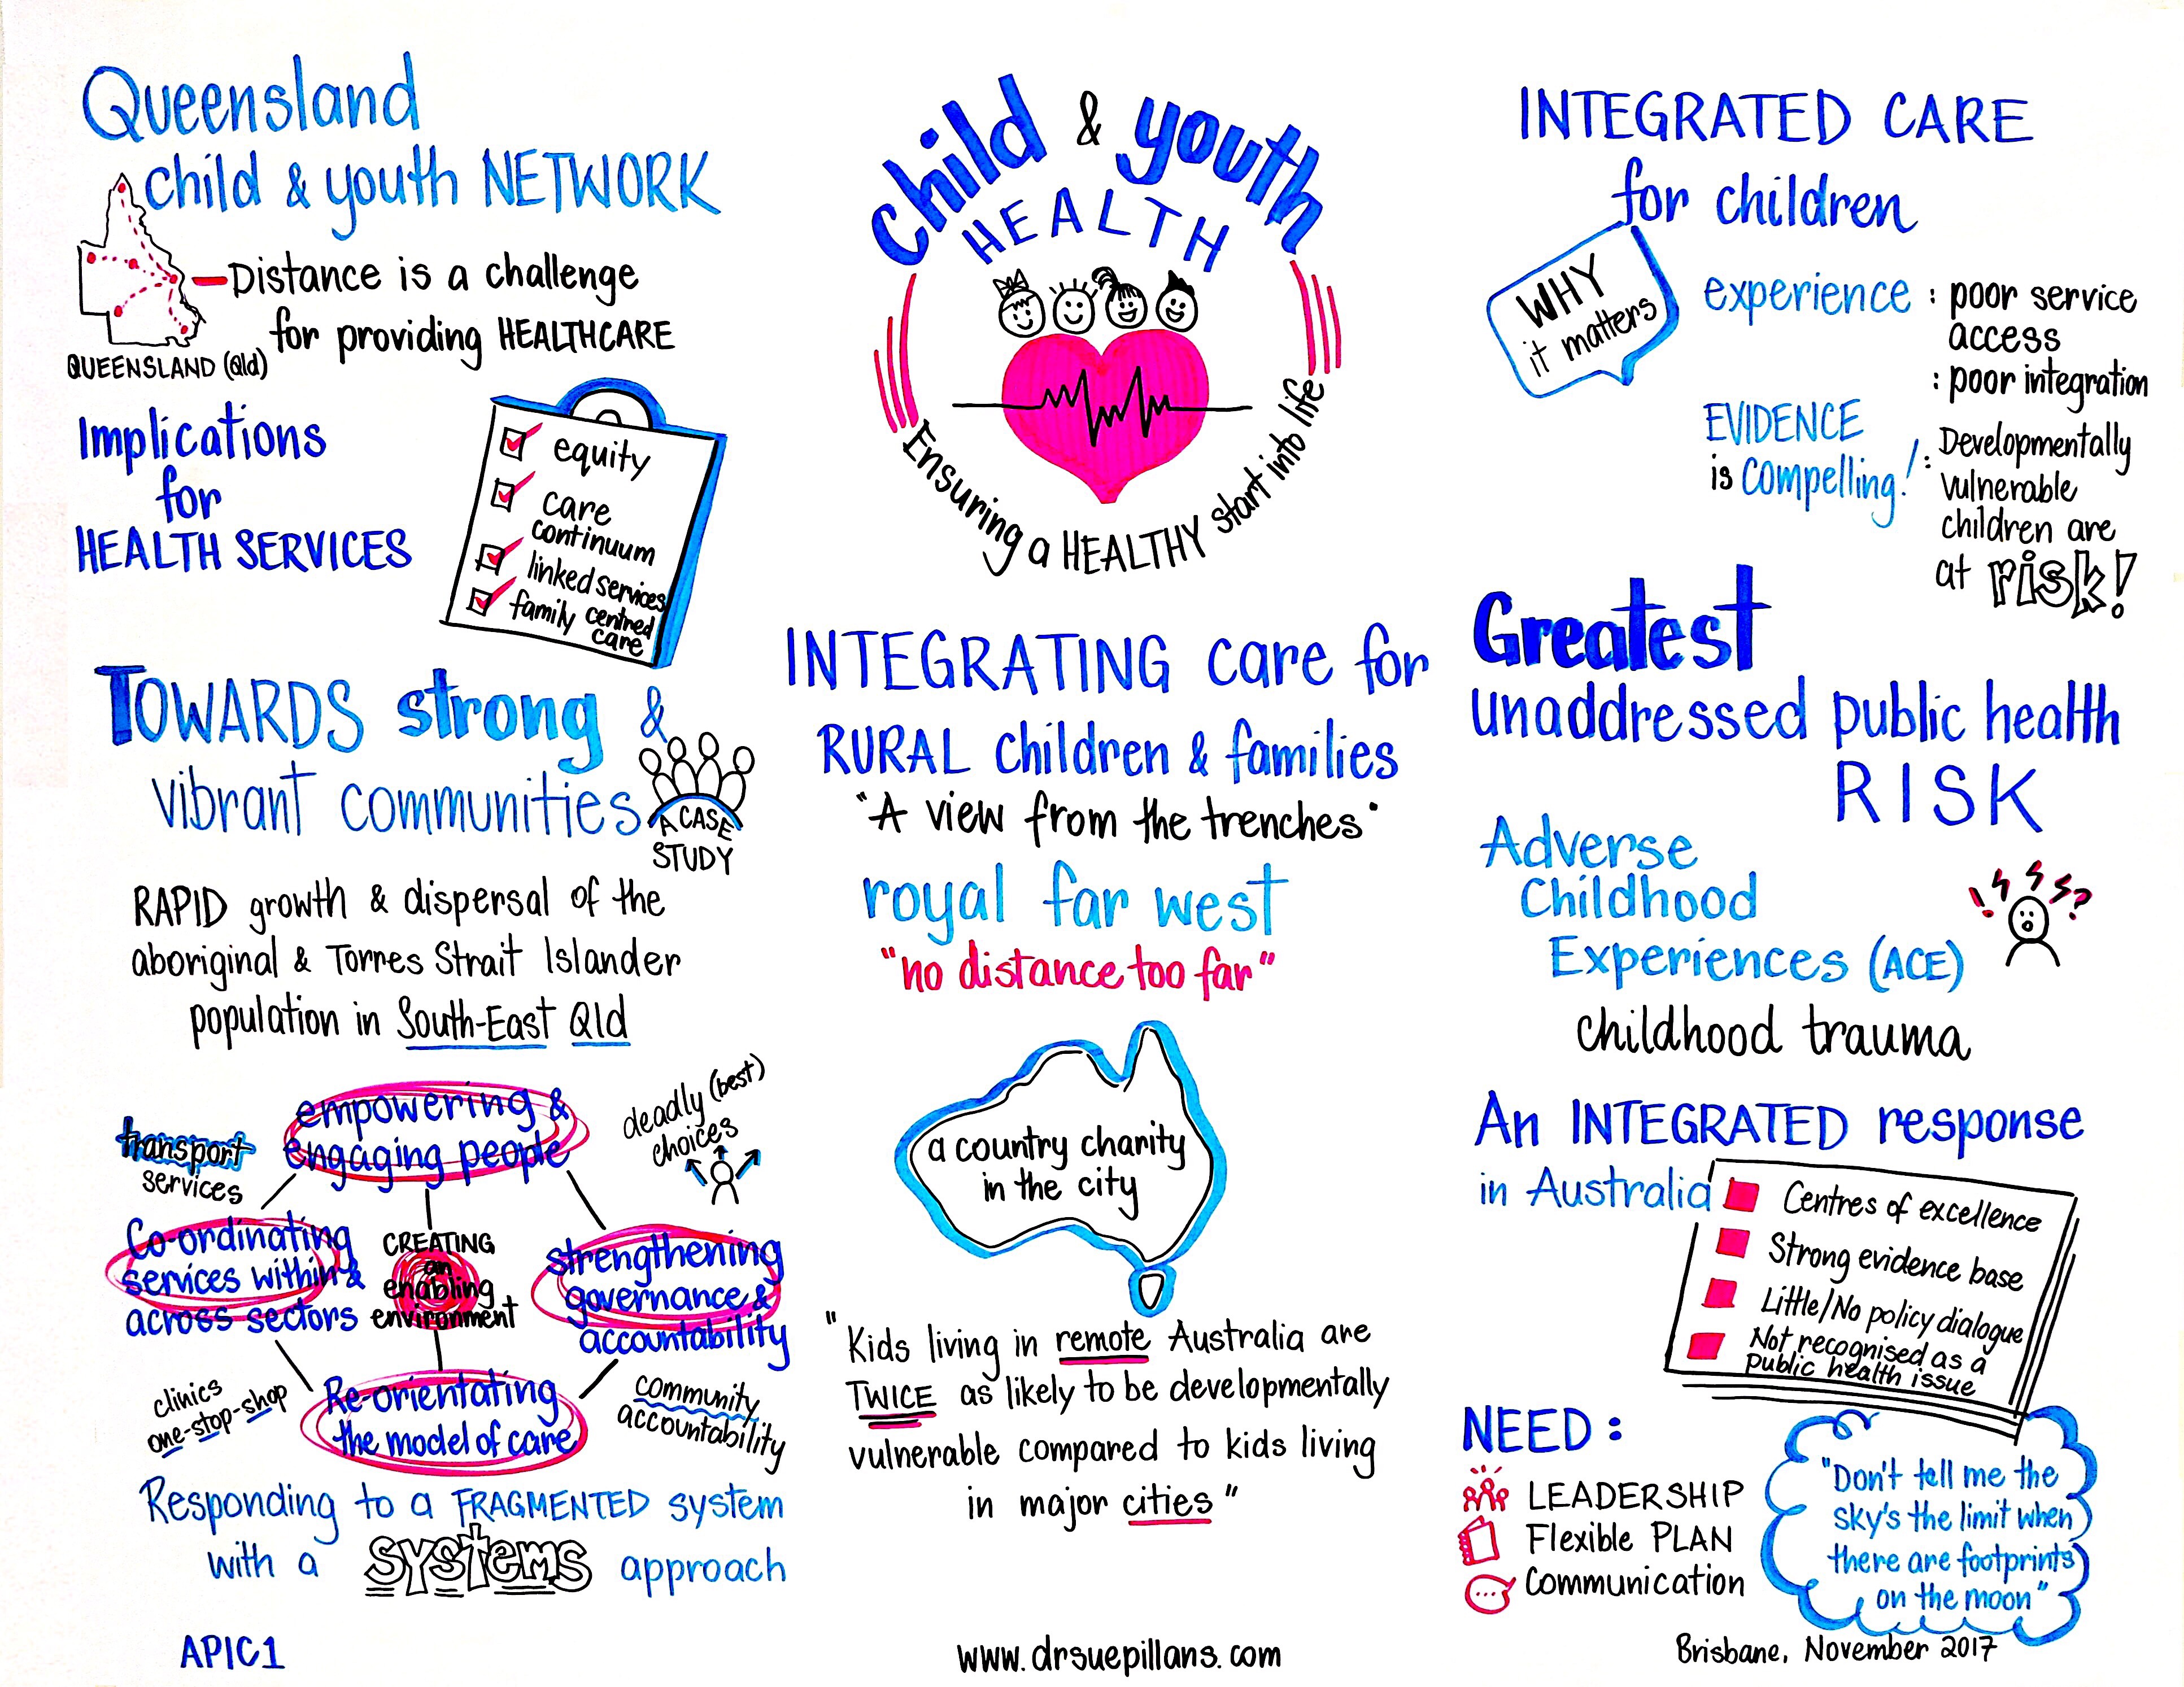 Queensland
child & youth NETWORK
Distance is a challenge
for providing HEALTHCARE
QUEENSLAND (Qld)
Implications
for
HEALTH SERVICES
equity
care
continuum
linked services
family centred
care
TOWARDS strong &
vibrant communities
A CASE
STUDY
RAPID growth & dispersal of the
aboriginal & Torres Strait Islander
population in South-East Qld
transport
services
empowering &
engaging people
deadly (best)
choices
Co-ordinating
services within &
across sectors
CREATING
an
enabling
environment
strengthening
governance &
accountability
clinics
one-stop-shop
Re-orientating
the model of care
community
accountability
Responding to a FRAGMENTED system
with a systems approach
APIC1
child & youth
HEALTH
Ensuring a HEALTHY start into life
INTEGRATING care for
RURAL children & families
"A view from the trenches"
royal far west
"no distance too far"
a country charity
in the city
"Kids living in remote Australia are
TWICE as likely to be developmentally
vulnerable compared to kids living
in major cities"
www.drsuepillans.com
INTEGRATED CARE
for children
WHY
it matters
experience : poor service
access
: poor integration
EVIDENCE
is compelling!
: Developmentally
vulnerable
children are
at risk!
Greatest
unaddressed public health
RISK
Adverse
Childhood
Experiences (ACE)
! ?
childhood trauma
An INTEGRATED response
in Australia
Centres of excellence
Strong evidence base
Little/No policy dialogue
Not recognised as a
public health issue
NEED:
LEADERSHIP
Flexible PLAN
Communication
"Don't tell me the
sky's the limit when
there are footprints
on the moon"
Brisbane, November 2017